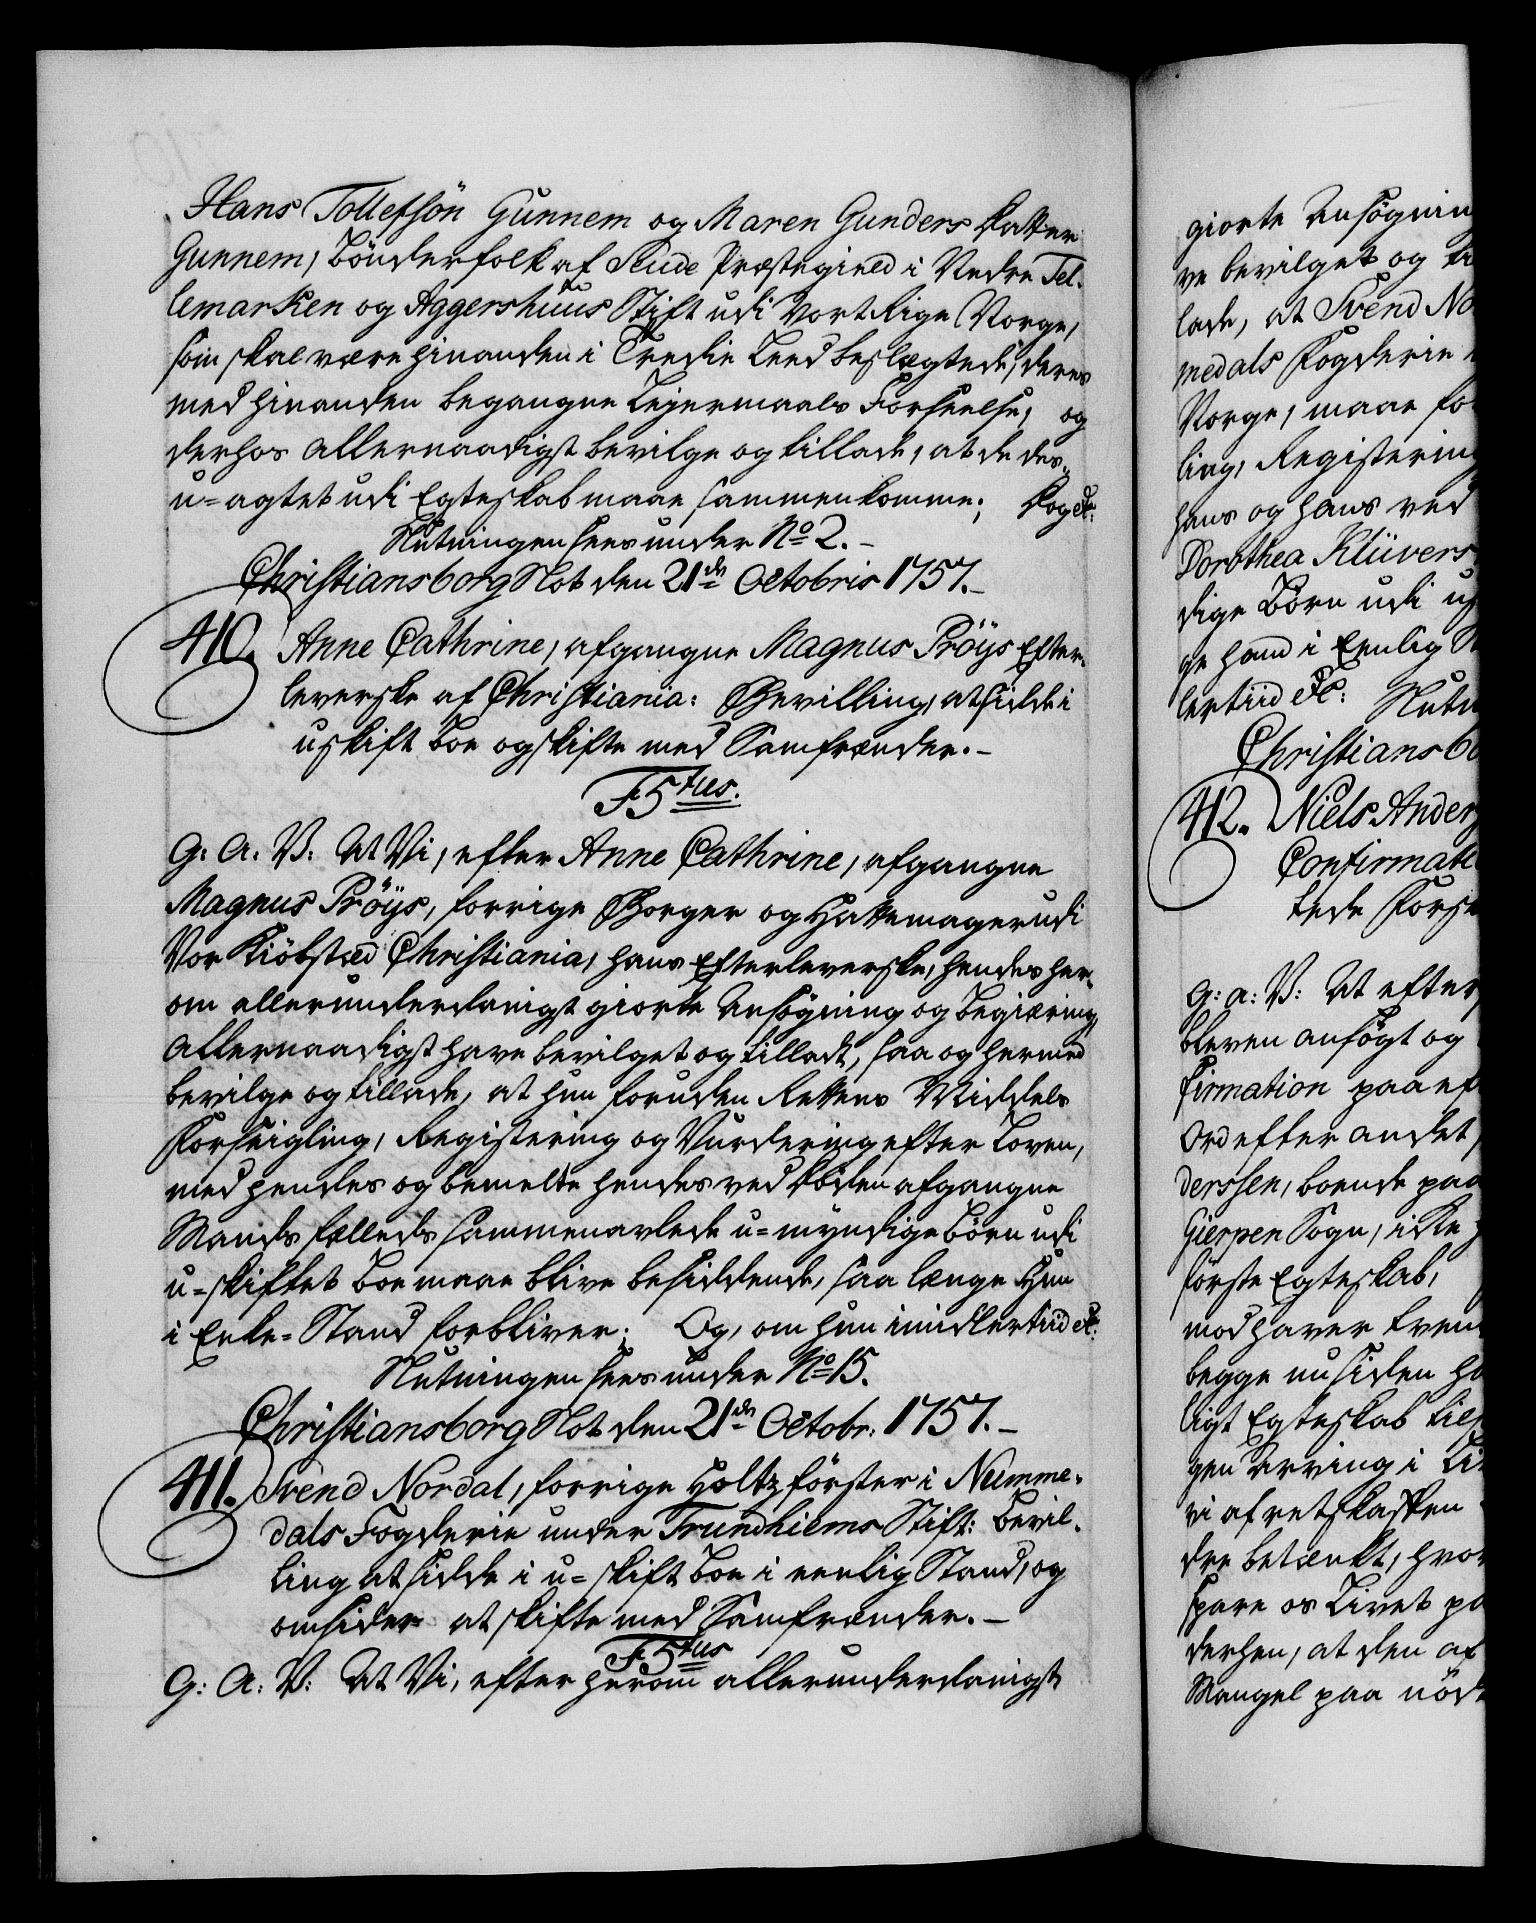 Hans Tollefsön Gunnem og Maren Gunders Datter
Gunnem, Bönderfolk af Siude Præstegield i Nedre Tel-
lemarken og Aggershuus Stift udi Vort Rige Norge,
som skal være hinanden i Tredie Leed beslægtede, deres
med hinanden begangne Lejermaals Forseelse, og
derhos allernaadigst bevilge og tillade, at de des-
u-agtet udi Egteskab maae sammenkomme; Dog etc:
Slutningen sees under No 2.-
Christiansborg Slot den 21de Octobris 1757.-
410. Anne Cathrine, afgangne Magnus Pröÿs Efter-
leverske af Christiania: Bevilling, at sidde i
uskift Boe og skifte med Samfrænder.-
F5tus.
G: A: V: At Vi, efter Anne Cathrine, afgangne
Magnus Pröÿs, forrige Borger og Hattemager udi
Vor Kiöbstæd Christiania, hans Efterleverske, hendes her-
om allerunderdanigst giorte Ansögning og Begiæring,
allernaadigst have bevilget og tilladt, saa og hermed
bevilge og tillade, at hun foruden Rettens Middels
Forseigling, Registering og Vurdering efter Loven,
med hendes og bemelte hendes ved Döden afgangne
Mands fælleds sammenavlede u-myndige Börn udi
u-skiftet Boe maae blive besiddende, saa længe Hun
i Enke-Stand forbliver; Og, om hun imidlertiid etc:
Slutningen sees under No 15.
Christiansborg Slot den 21de Octobr: 1757.-
411. Svend Nordal, forrige Holtzförster i Numme-
dals Fogderie under Trundhiems Stift: Bevil-
ling at sidde i u-skift Boe i eenlig Stand, og
omsider at skifte med Samfrænder.-
F5tus
G: A: V: At Vi, efter herom allerunderdanigst
giorte Ansögning
ve bevilget og ti
lade, at Svend No
medals Fogderie
Norge, maae fo
ling, Registering
hans og hans ved
Dorothea Klüvers
dige Börn udi us
ge hand i Eenlig S
lertiid etc: Slutn
Christiansbo
412. Niels Anders
Confirmati
tede Forse
G: a: V: At efter
bleven ansögt og
firmation paa ef
Ord efter andet,
derssen, boende paa
Gierpen Sogn, icke
förste Egteskab,
mod haver tven
begge nu siden ha
ligt Egteskab til
gen Arving i Li
vi af retskaffen
dre betænkt, hvor
spare os Livet pa
derhen, at den af
Mangel paa nöd